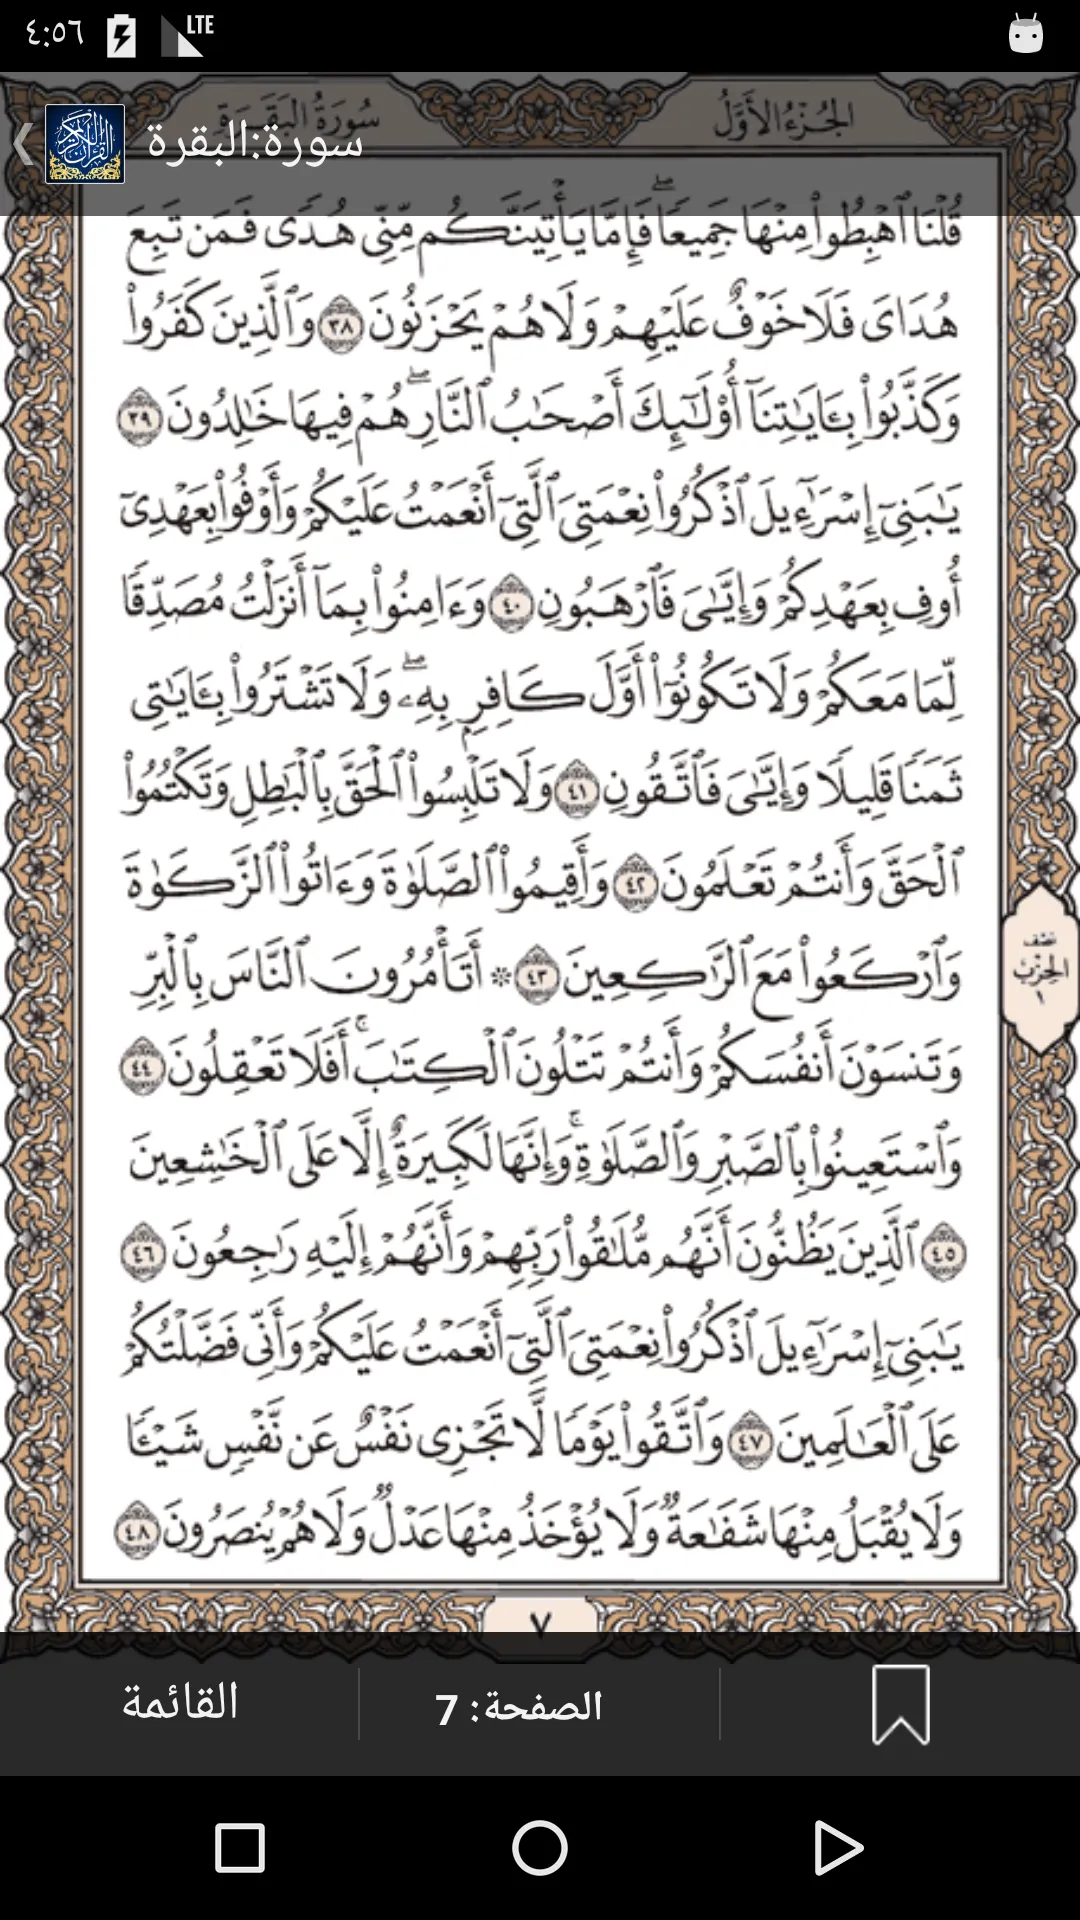 ٤:٥٦ LTE
سُورَةُ البَقَرَةِ الجُزْءُ الأَوَّلُ
سورة:البقرة
قُلْنَا ٱهْبِطُوا۟ مِنْهَا جَمِيعًا ۖ فَإِمَّا يَأْتِيَنَّكُم مِّنِّى هُدًى فَمَن تَبِعَ
هُدَاىَ فَلَا خَوْفٌ عَلَيْهِمْ وَلَا هُمْ يَحْزَنُونَ ٣٨ وَٱلَّذِينَ كَفَرُوا۟
وَكَذَّبُوا۟ بِـَٔايَـٰتِنَآ أُو۟لَـٰٓئِكَ أَصْحَـٰبُ ٱلنَّارِ ۖ هُمْ فِيهَا خَـٰلِدُونَ ٣٩
يَـٰبَنِىٓ إِسْرَٰٓءِيلَ ٱذْكُرُوا۟ نِعْمَتِىَ ٱلَّتِىٓ أَنْعَمْتُ عَلَيْكُمْ وَأَوْفُوا۟ بِعَهْدِىٓ
أُوفِ بِعَهْدِكُمْ وَإِيَّـٰىَ فَٱرْهَبُونِ ٤٠ وَءَامِنُوا۟ بِمَآ أَنزَلْتُ مُصَدِّقًا
لِّمَا مَعَكُمْ وَلَا تَكُونُوٓا۟ أَوَّلَ كَافِرٍۭ بِهِۦ ۖ وَلَا تَشْتَرُوا۟ بِـَٔايَـٰتِى
ثَمَنًا قَلِيلًا وَإِيَّـٰىَ فَٱتَّقُونِ ٤١ وَلَا تَلْبِسُوا۟ ٱلْحَقَّ بِٱلْبَـٰطِلِ وَتَكْتُمُوا۟
ٱلْحَقَّ وَأَنتُمْ تَعْلَمُونَ ٤٢ وَأَقِيمُوا۟ ٱلصَّلَوٰةَ وَءَاتُوا۟ ٱلزَّكَوٰةَ
وَٱرْكَعُوا۟ مَعَ ٱلرَّٰكِعِينَ ٤٣ ۞ أَتَأْمُرُونَ ٱلنَّاسَ بِٱلْبِرِّ
وَتَنسَوْنَ أَنفُسَكُمْ وَأَنتُمْ تَتْلُونَ ٱلْكِتَـٰبَ ۚ أَفَلَا تَعْقِلُونَ ٤٤
وَٱسْتَعِينُوا۟ بِٱلصَّبْرِ وَٱلصَّلَوٰةِ ۚ وَإِنَّهَا لَكَبِيرَةٌ إِلَّا عَلَى ٱلْخَـٰشِعِينَ
٤٥ ٱلَّذِينَ يَظُنُّونَ أَنَّهُم مُّلَـٰقُوا۟ رَبِّهِمْ وَأَنَّهُمْ إِلَيْهِ رَٰجِعُونَ ٤٦
يَـٰبَنِىٓ إِسْرَٰٓءِيلَ ٱذْكُرُوا۟ نِعْمَتِىَ ٱلَّتِىٓ أَنْعَمْتُ عَلَيْكُمْ وَأَنِّى فَضَّلْتُكُمْ
عَلَى ٱلْعَـٰلَمِينَ ٤٧ وَٱتَّقُوا۟ يَوْمًا لَّا تَجْزِى نَفْسٌ عَن نَّفْسٍ شَيْـًٔا
وَلَا يُقْبَلُ مِنْهَا شَفَـٰعَةٌ وَلَا يُؤْخَذُ مِنْهَا عَدْلٌ وَلَا هُمْ يُنصَرُونَ ٤٨
نصف
الحزب
١
٧
القائمة
الصفحة: 7